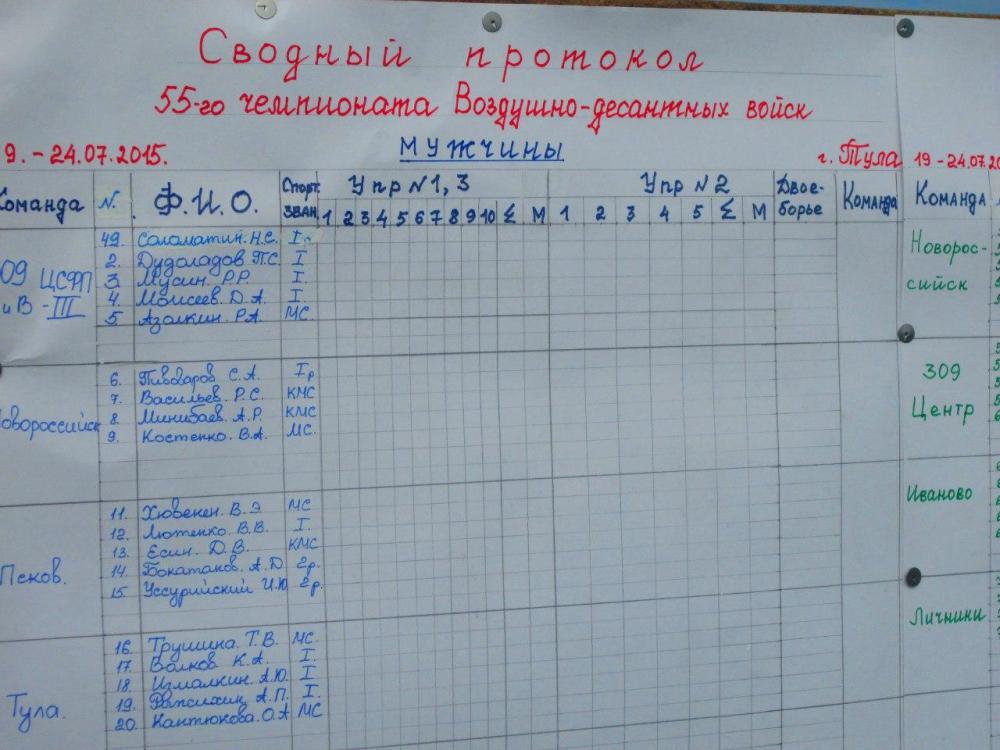 Сводный протокол
55-го чемпионата Воздушно-десантных войск
9.-24.07.2015. МУЖЧИНЫ г. Тула
Команда N. Ф.И.О. Спорт. ЗВАН. Упр N1, 3 Упр N2 Двое-борье Команда
1 2 3 4 5 6 7 8 9 10 Σ М 1 2 3 4 5 Σ М
09 ЦСФП
и В -III
49. Соломатин. Н.С. Iр
2. Дудоладов П.С. I
3. Мусин. Р.Р. I.
4. Моисеев. Д.А. I.
5. Азолкин. Р.А. МС.
Новороссийск
6. Пивоваров С.А. Iр
7. Васильев. Р.С. КМС
8. Минибаев. А.Р. КМС
9. Костенко. В.А. МС.
Псков.
11. Хювенен. В.Э МС
12. Лютенко В.В. I.
13. Есин. Д.В. КМС
14. Бокатанов. А.Д 2р.
15 Уссурийский И.Ю 2р.
Тула.
16. Трушина. Т.В. МС.
17. Волков К.А. I.
18. Измалкин. А.Ю. I
19. А.П. I.
20. Кантюкова. О.А МС
19-24.07.20
Команда
Новорос-
сийск
309
Центр
Иваново
Личники